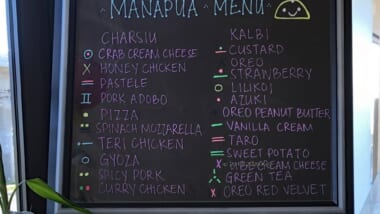 MANAPUA MENU
CHARSIU
CRAB CREAM CHEESE
HONEY CHICKEN
PASTELE
PORK ADOBO
PIZZA
SPINACH MOZZARELLA
TERI CHICKEN
GYOZA
SPICY PORK
CURRY CHICKEN
KALBI
CUSTARD
OREO
STRAWBERRY
LILIKOI
AZUKI
OREO PEANUT BUTTER
VANILLA CREAM
TARO
SWEET POTATO
CREAM CHEESE
GREEN TEA
OREO RED VELVET